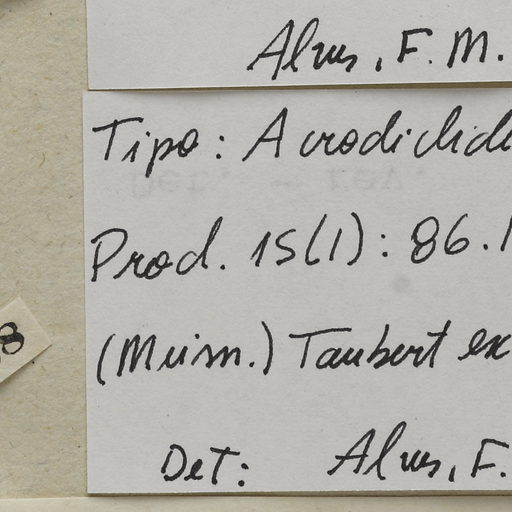 Alves, F. M.
Tipo: Acrodiclid
Prod. 15(1): 86. 1
(Meisn.) Taubert ex
8
Det: Alves, F.